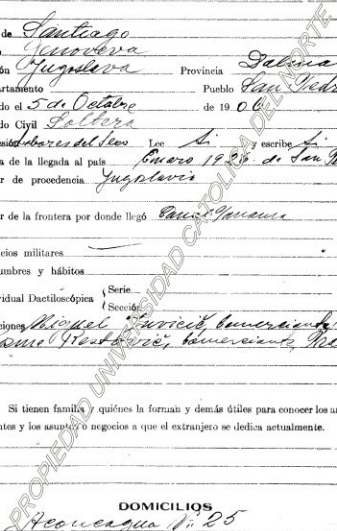 de Santiago
Genoveva
ón Yugoslava Provincia Dalma
artamento Pueblo San Pedr
do el 5 de Octubre de 1906
do Civil Soltera
esión Labores del Sexo Lee Si y escribe Si
a de la llegada al país Enero 1926 de San
r de procedencia Yugoslavia
r de la frontera por donde llegó Canal Panamá
cios militares
umbres y hábitos
vidual Dactiloscópica { Serie
Sección
ciones Miguel comerciante
comerciante,
Si tienen familia y quiénes la forman y demás útiles para conocer los an
ntes y los asuntos o negocios a que el extranjero se dedica actualmente.
DOMICILIOS
Aconcagua No. 25
PROPIEDAD UNIVERSIDAD CATOLICA DEL NORTE